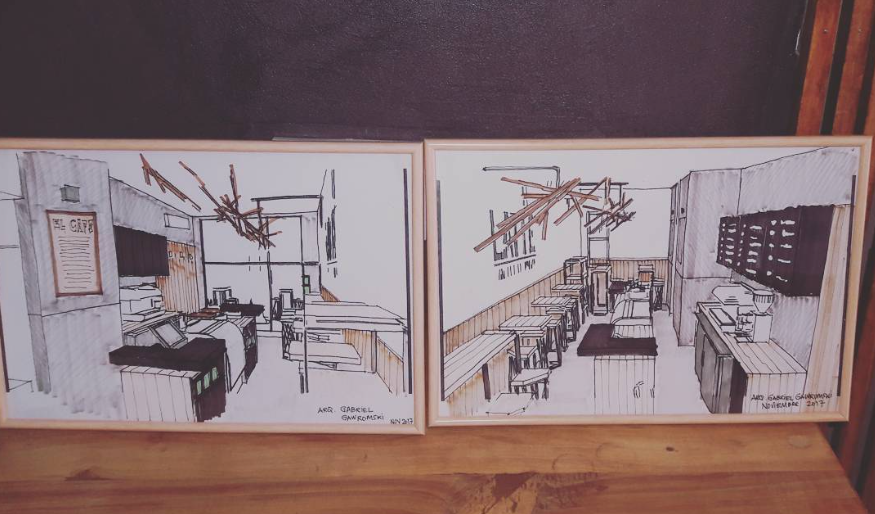 EL CAFÉ
ARQ. GABRIEL
GAWROMSKI
NOV 2017
ARQ. GABRIEL GAWROMSKI
NOVIEMBRE 2017